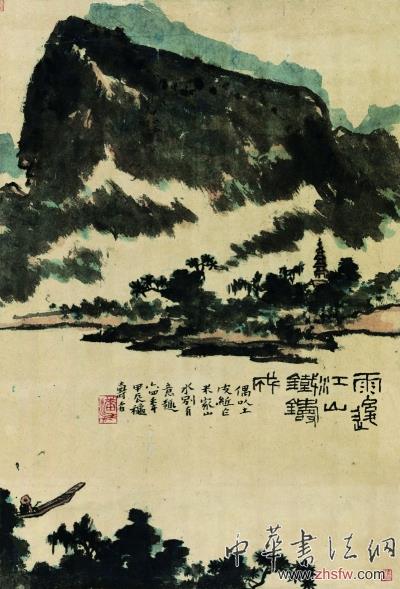 雨後
江山
鐵鑄
成
偶以土
皮紙作
米家山
水別有
意趣
六四年
甲辰穐
壽者
中華書法網
www.zhsfw.com